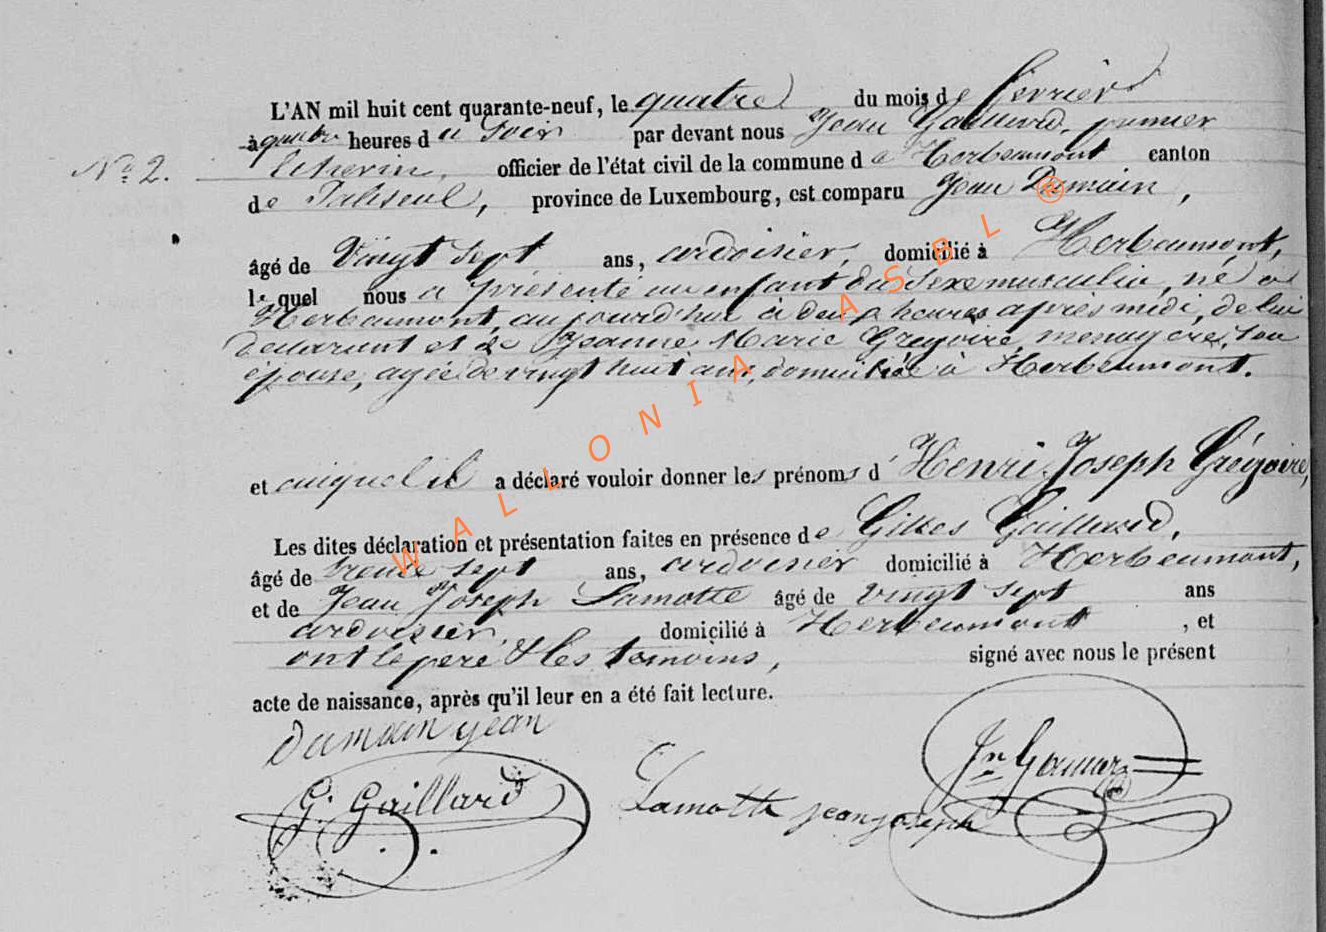 L'AN mil huit cent quarante-neuf, le quatre du mois de fevrier
à quatre heures du Soir par devant nous Jean Gaillard, premier
Nº 2. Echevin, officier de l'état civil de la commune de Herbeumont canton
de Paliseul, province de Luxembourg, est comparu Jean Damain,
âgé de Vingt Sept ans, ardoisier, domicilié à Herbeumont,
lequel nous a présenté un enfant du Sexe masculin, né à
Herbeumont, aujourd'hui à deux heures après midi, de lui
declarant et de Jeanne Marie Gregoire, menagere, son
épouse, agée de vingt huit ans, domiciliée à Herbeumont.
et auquel il a déclaré vouloir donner les prénoms d' Henri Joseph Grégoire,
Les dites déclaration et présentation faites en présence de Gilles Gaillard,
âgé de trente sept ans, ardoisier domicilié à Herbeumont,
et de Jean Joseph Lamotte âgé de vingt sept ans
ardoisier, domicilié à Herbeumont, et
ont le pere & les temoins, signé avec nous le présent
acte de naissance, après qu'il leur en a été fait lecture.
Damain jean
G. Gaillard Lamotte jean joseph Jn
WALLONIA ASBL ®